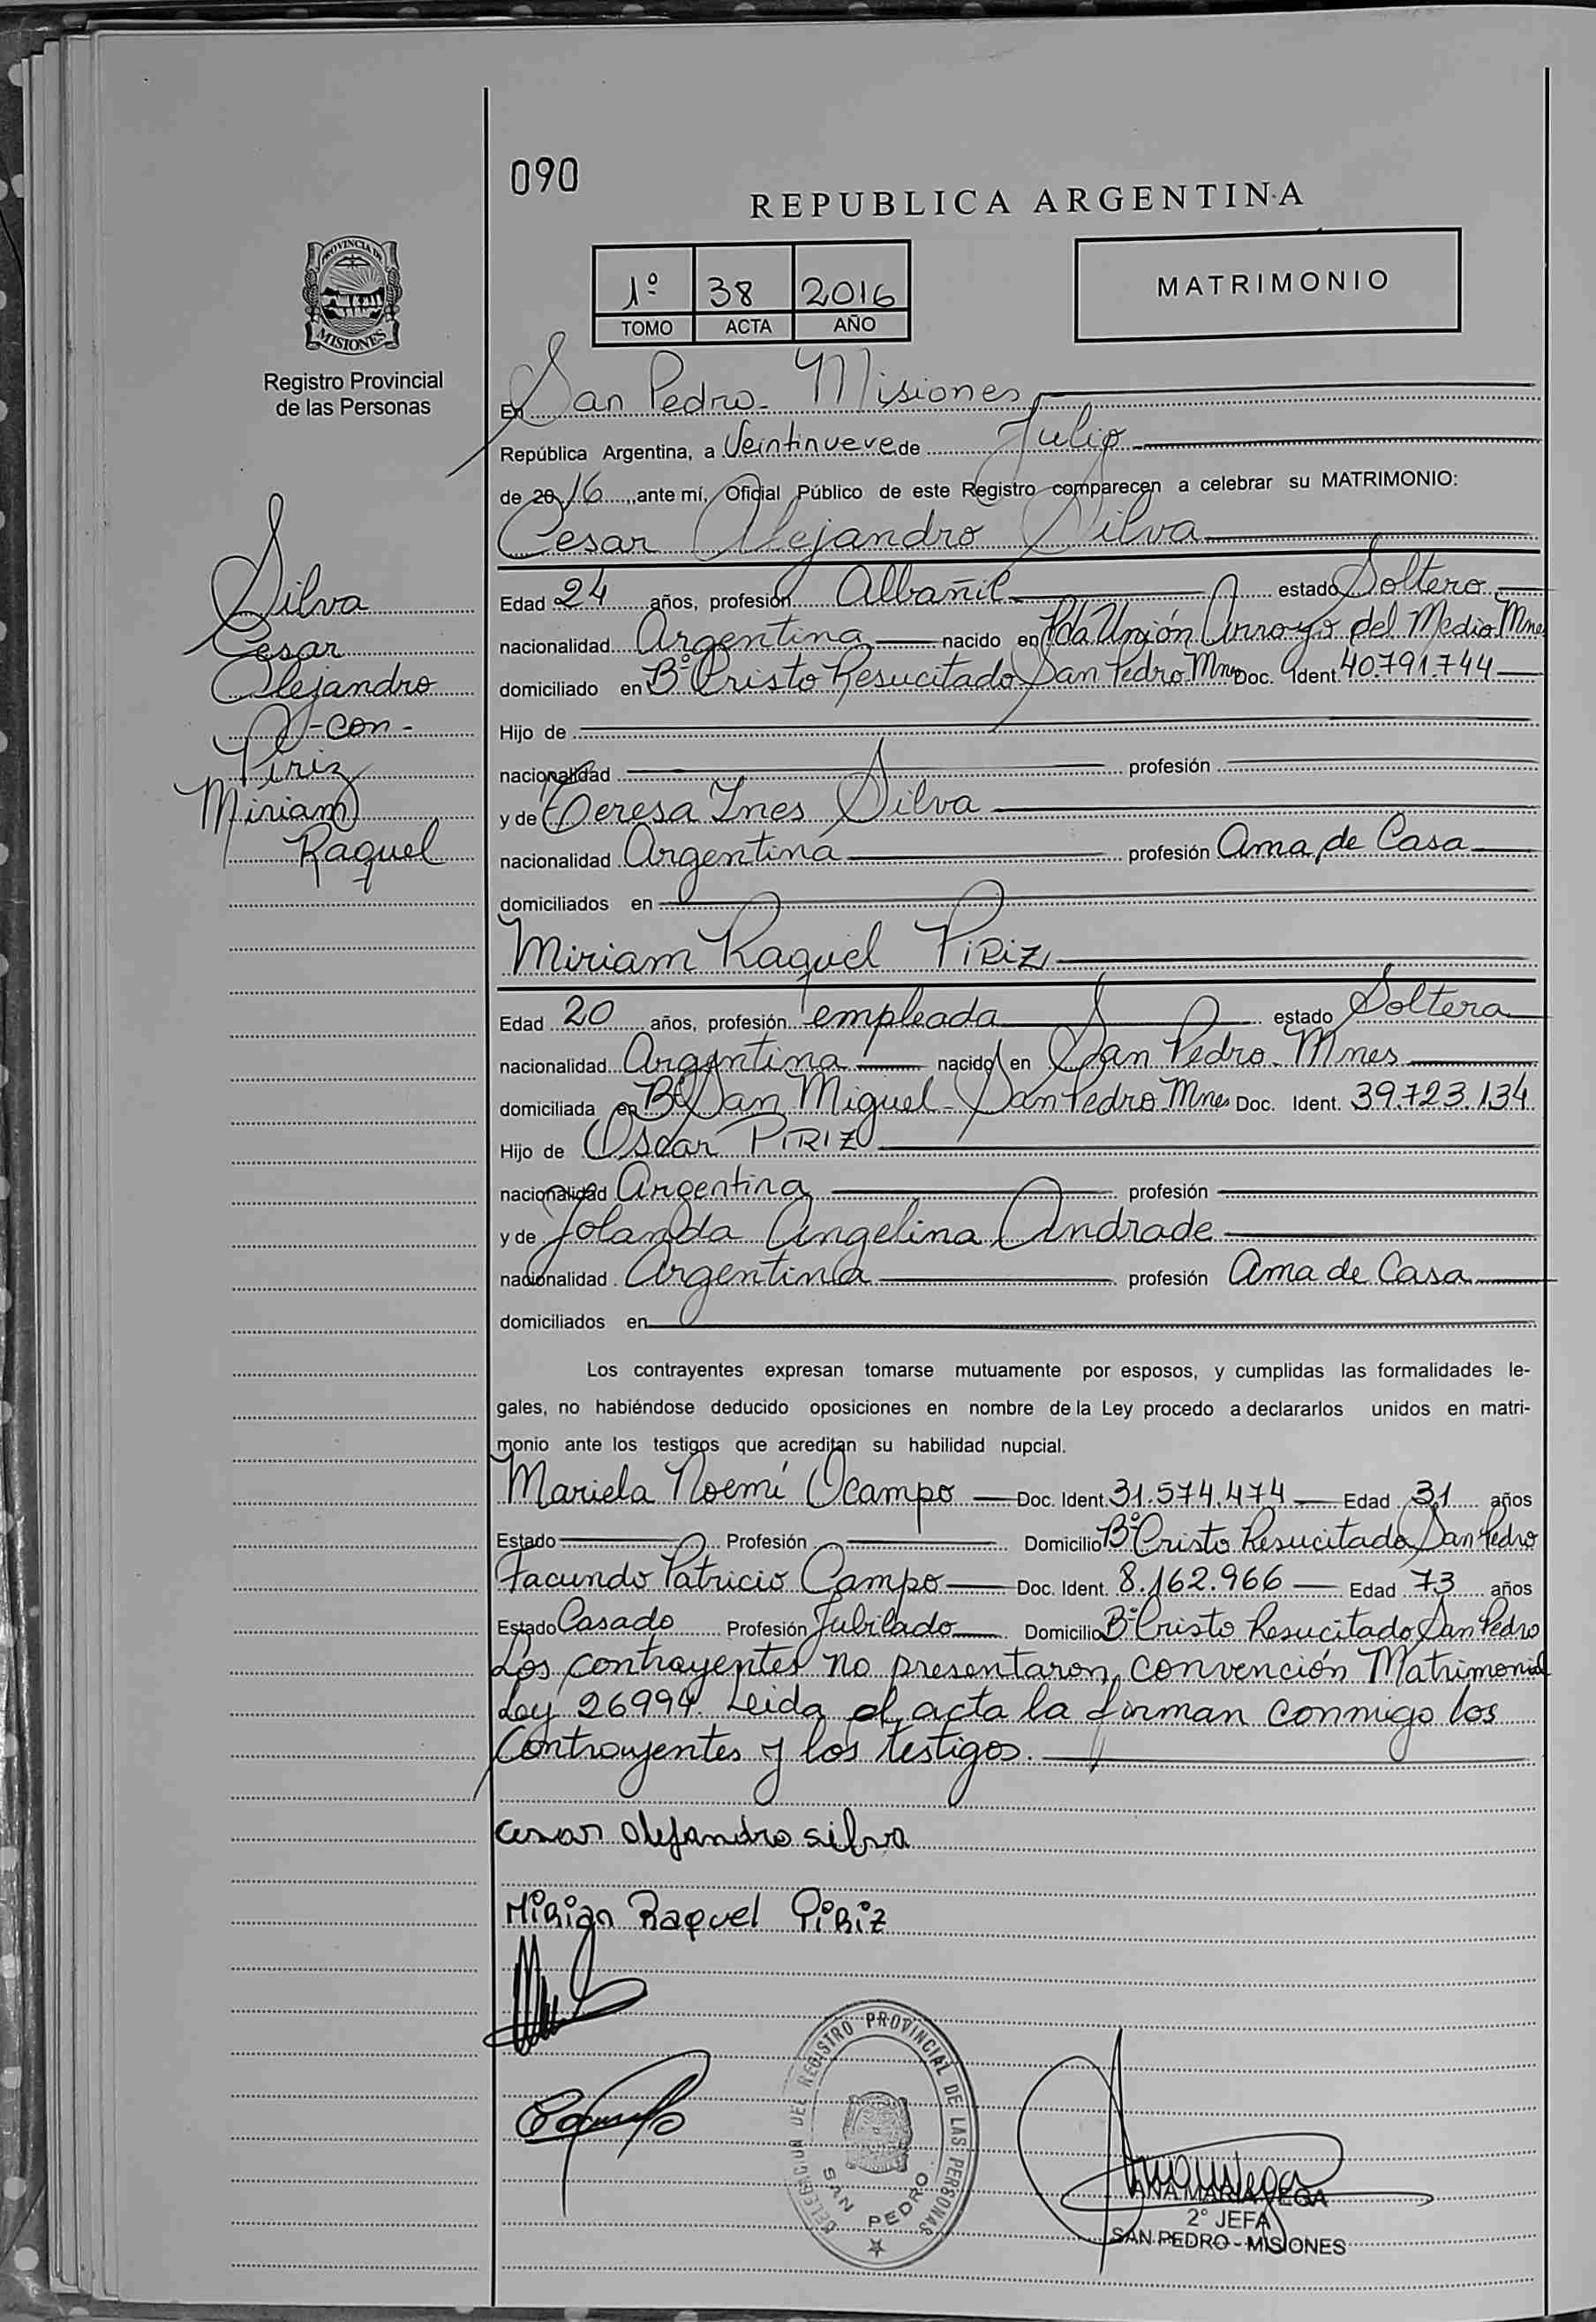 090
REPUBLICA ARGENTINA
1º 38 2016
TOMO ACTA AÑO
MATRIMONIO
PROVINCIA DE
MISIONES
Registro Provincial
de las Personas
En San Pedro - Misiones
República Argentina, a Veintinueve de Julio
de 2016, ante mí, Oficial Público de este Registro comparecen a celebrar su MATRIMONIO:
Cesar Alejandro Silva
Silva
Cesar
Alejandro
-con-
Piriz
Miriam
Raquel
Edad 24 años, profesión Albañil estado Soltero
nacionalidad Argentina nacido en Pda Unión Arroyo del Medio Mnes
domiciliado en Bº Cristo Resucitado San Pedro Mnes Doc. Ident. 40.791.744
Hijo de
nacionalidad profesión
y de Teresa Ines Silva
nacionalidad Argentina profesión Ama de Casa
domiciliados en
Miriam Raquel PiRiZ
Edad 20 años, profesión empleada estado Soltera
nacionalidad Argentina nacido en San Pedro - Mnes
domiciliada en Bº San Miguel - San Pedro Mnes Doc. Ident. 39.723.134
Hijo de Oscar PiRIZ
nacionalidad Argentina profesión
y de Yolanda Angelina Andrade
nacionalidad Argentina profesión Ama de Casa
domiciliados en
Los contrayentes expresan tomarse mutuamente por esposos, y cumplidas las formalidades le-
gales, no habiéndose deducido oposiciones en nombre de la Ley procedo a declararlos unidos en matri-
monio ante los testigos que acreditan su habilidad nupcial.
Mariela Noemí Ocampo Doc. Ident. 31.574.474 Edad 31 años
Estado Profesión Domicilio Bº Cristo Resucitado San Pedro
Facundo Patricio Campo Doc. Ident. 8.162.966 Edad 73 años
Estado Casado Profesión Jubilado Domicilio Bº Cristo Resucitado San Pedro
Los contrayentes no presentaron convención Matrimonial
Ley 26994. Leida el acta la firman conmigo los
Contrayentes y los testigos.
Cesar alejandro silva
MiRian Raquel PiRiZ
DELEGACION DEL REGISTRO PROVINCIAL DE LAS PERSONAS
SAN PEDRO
ANA MARIA VEGA
2° JEFA
SAN PEDRO - MISIONES